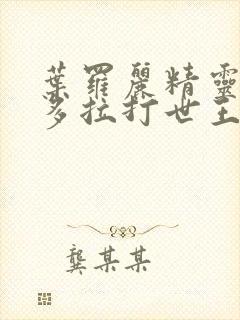 葉羅麗精靈
多拉打世王
龔某某